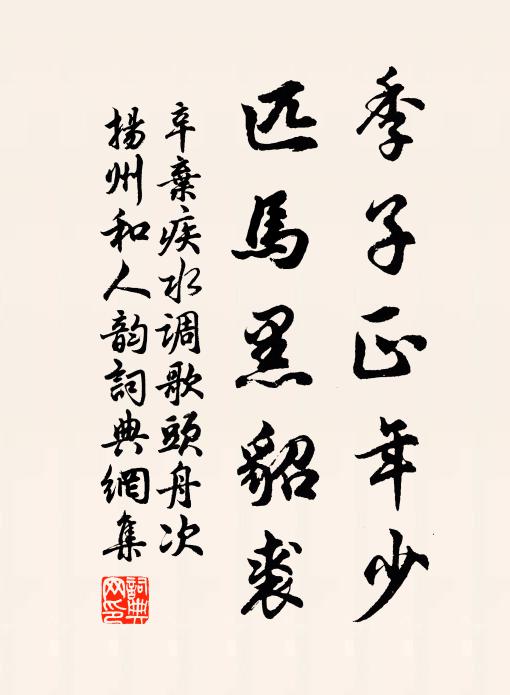 季子正年少
匹馬黑貂裘
辛棄疾水调歌頭舟次
揚州和人韵詞典網集
詞典网印